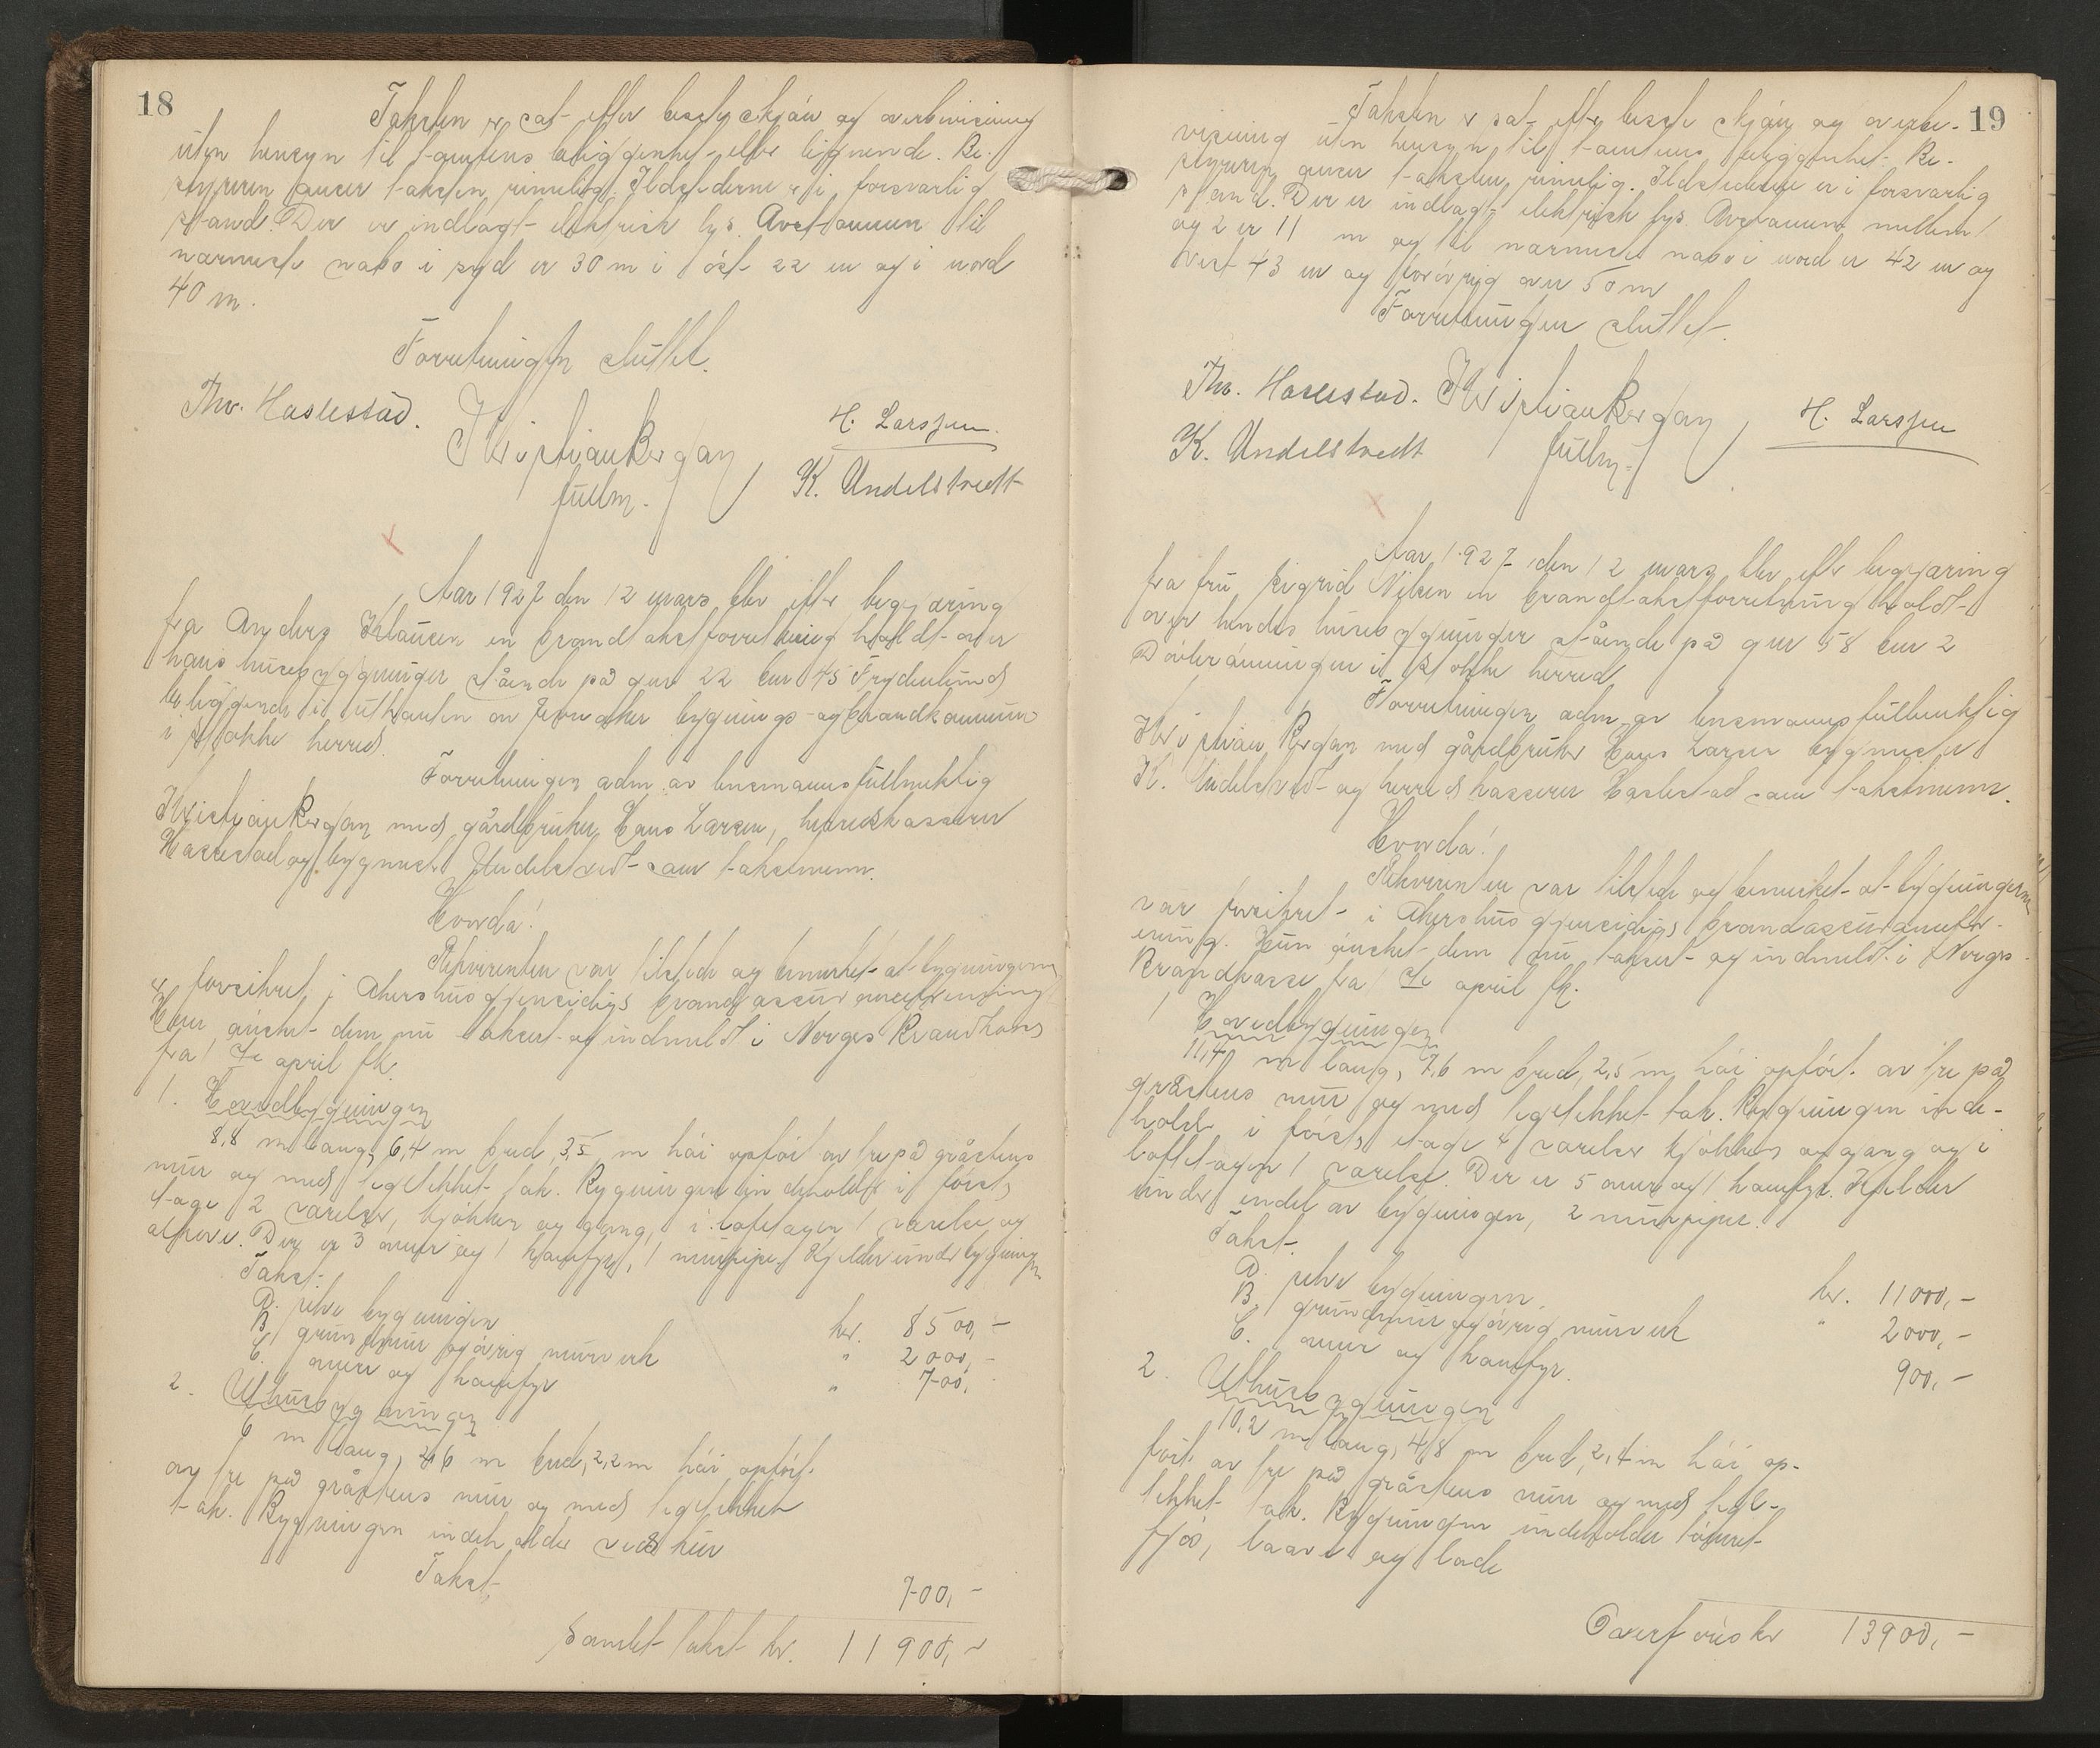 18
Taksten er sat efter beste skjøn og overbevisning
uten hensyn til tomtens beliggenhet eller lignende. Be-
styreren anser taksten rimelig. Ildstederne er i forsvarlig
stand. Der er indlagt elektrisk lys. Avstannen til
nærmeste nabo i syd er 30 m i øst 22 m og i nord
40 m.
Forretningen sluttet.
Thv. Haslestad. Kristian Bergan H. Larssen
fullm. K. Undelstvedt
Aar 1927 den 12 mars blev efter begjæring
fra Anders Klausen en brandtakstforretning holdt over
hans husebygguinger stående på gnr 22 bnr 45 Frydenlund
beliggende i utkanten av bygnings- og brandkommune
i Stokke herred.
Forretningen adm. av lensmannsfullmektig
Kristian Bergan med gårdbruker Hans Larsen, herredskasserer
Haslestad og bygmester Undelstvedt som takstmenn.
Hvorda!
Rekvirenten var tilstede og bemerket at bygningerne
er forsikret i Akershus gjensidige brandassuranceforening
Han ønsket dem nu takseret og indmeldt i Norges Brandkasse
fra 1ste april fk.
1. Hovedbygningen
8,8 m lang, 6,4 m bred, 3,5 m høi opført av tre på gråstens
mur og med teglstekket tak. Bygningen indeholder i første
etage 2 værelser, kjøkken og gang, i loftetagen 1 værelse og
alkove. Der er 3 ovner og 1 komfyr, 1 murpipe. Kjelder under bygningen
Takst:
A. selve bygningen kr. 8500,-
B. grundmur og øvrig murverk " 2000,-
C. ovner og komfyr " 700,
2. Uthusbygningen
6 m lang, 4,6 m bred, 2,2 m høi opført
av tre på gråstens mur og med teglstekket
tak. Bygningen indeholder vedskur
Takst, 700,-
Samlet takst kr. 11900,-
19
Taksten er sat efter beste skjøn og overbe-
visning uten hensyn til tomtens beliggenhet. Be-
styreren anser taksten rimelig. Ildstederne er i forsvarlig
stand. Der er indlagt elektrisk lys. Avstannen mellem 1
og 2 er 11 m og til nærmeste nabo i nord er 42 m og
vest 43 m og forøvrig over 50 m
Forretningen sluttet.
Thv. Haslestad. Kristian Bergan H. Larssen
K. Undelstvedt fullm.
Aar 1927 den 12 mars blev efter begjæring
fra fru Sigrid Nilsen en brandtakstforretning holdt
over hendes husebygguinger stående på gnr 58 bnr 2
i Stokke herred
Forretningen adm av lensmannsfullmektig
Kristian Bergan med gårdbruker Hans Larsen bygmester
K. Undelstvedt og herredskasserer Haslestad som takstmenn.
Hvorda!
Rekvirenten var tilstede og bemerket at bygningerne
var forsikret i Akershus gjensidige brandassurancefor-
ening. Hun ønsket dem nu takseret og indmeldt i Norges
Brandkasse fra 1ste april fk.
1 Hovedbygningen
11,4 m lang, 7,6 m bred, 2,5 m høi opført av tre på
gråstens mur og med teglstekket tak. Bygningen inde-
holder i første etage 4 værelser kjøkken og gang og i
loftetagen 1 værelse. Der er 5 ovner og 1 komfyr. Kjelder
under endel av bygningen, 2 murpiper.
Takst.
A. selve bygningen. kr. 11000,-
B. grundmur og øvrig murverk " 2000,-
C. ovner og komfyr. 900,-
2. Uthusbygningen
10,2 m lang, 4,8 m bred, 2,4 m høi op-
ført av tre på gråstens mur og med tegl-
stekket tak. Bygningen indeholder tømret
fjøs, laave og lade
Overføres kr 13900,-